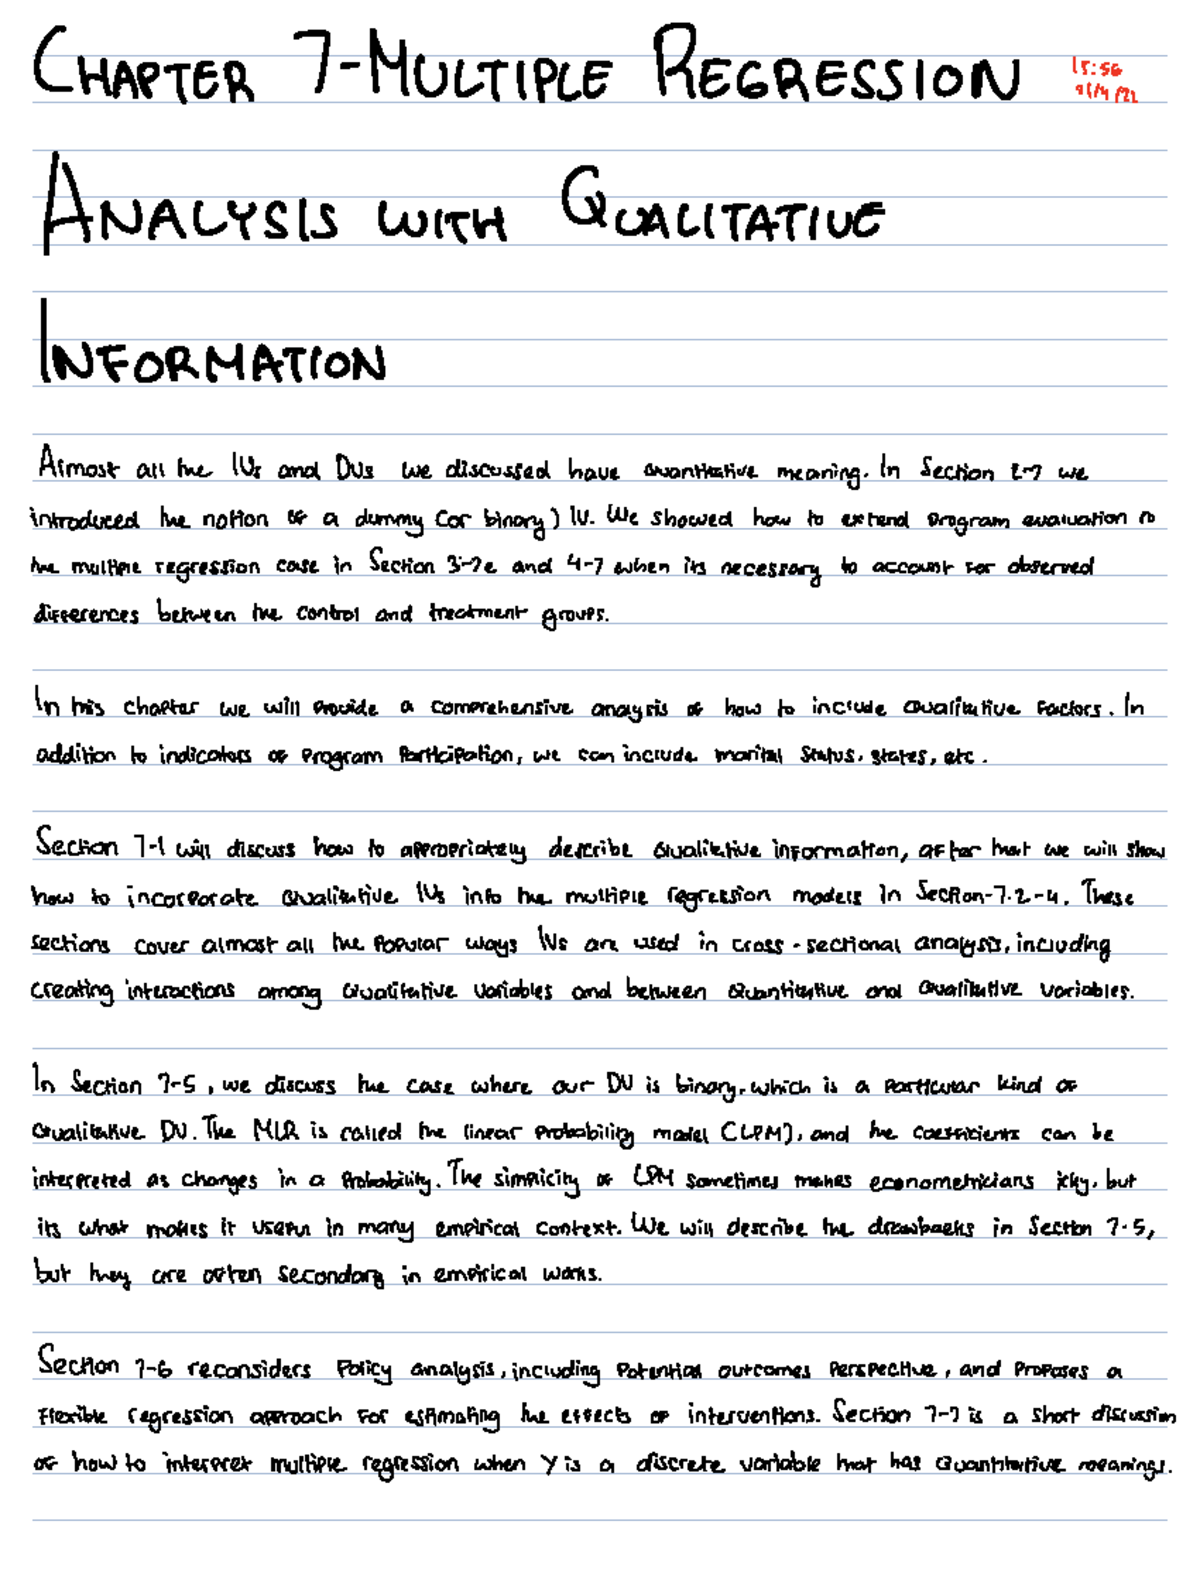 CHAPTER 7-MULTIPLE REGRESSION
15:56
ANALYSIS WITH QUALITATIVE
INFORMATION
Almost all the IVs and DVs we discussed have quantitative meaning. In Section 2-7 we
introduced the notion of a dummy (or binary) IV. We showed how to extend program evaluation to
the multiple regression case in Section 3-7e and 4-7 when its necessary to account for observed
differences between the control and treatment groups.
In this chapter we will provide a comprehensive analysis of how to include qualitative factors. In
addition to indicators of program participation, we can include marital status, states, etc.
Section 7-1 will discuss how to appropriately describe qualitative information, after that we will show
how to incorporate qualitative IVs into the multiple regression models in Section-7.2-4. These
sections cover almost all the popular ways IVs are used in cross-sectional analysis, including
creating interactions among qualitative variables and between quantitative and qualitative variables.
In Section 7-5, we discuss the case where our DV is binary, which is a particular kind of
qualitative DV. The MLR is called the linear probability model (LPM), and the coefficients can be
interpreted as changes in a probability. The simplicity of LPM sometimes makes econometricians icky, but
its what makes it useful in many empirical context. We will describe the drawbacks in Section 7-5,
but they are often secondary in empirical works.
Section 7-6 reconsiders policy analysis, including potential outcomes perspective, and proposes a
flexible regression approach for estimating the effects of interventions. Section 7-7 is a short discussion
of how to interpret multiple regression when Y is a discrete variable that has quantitative meanings.